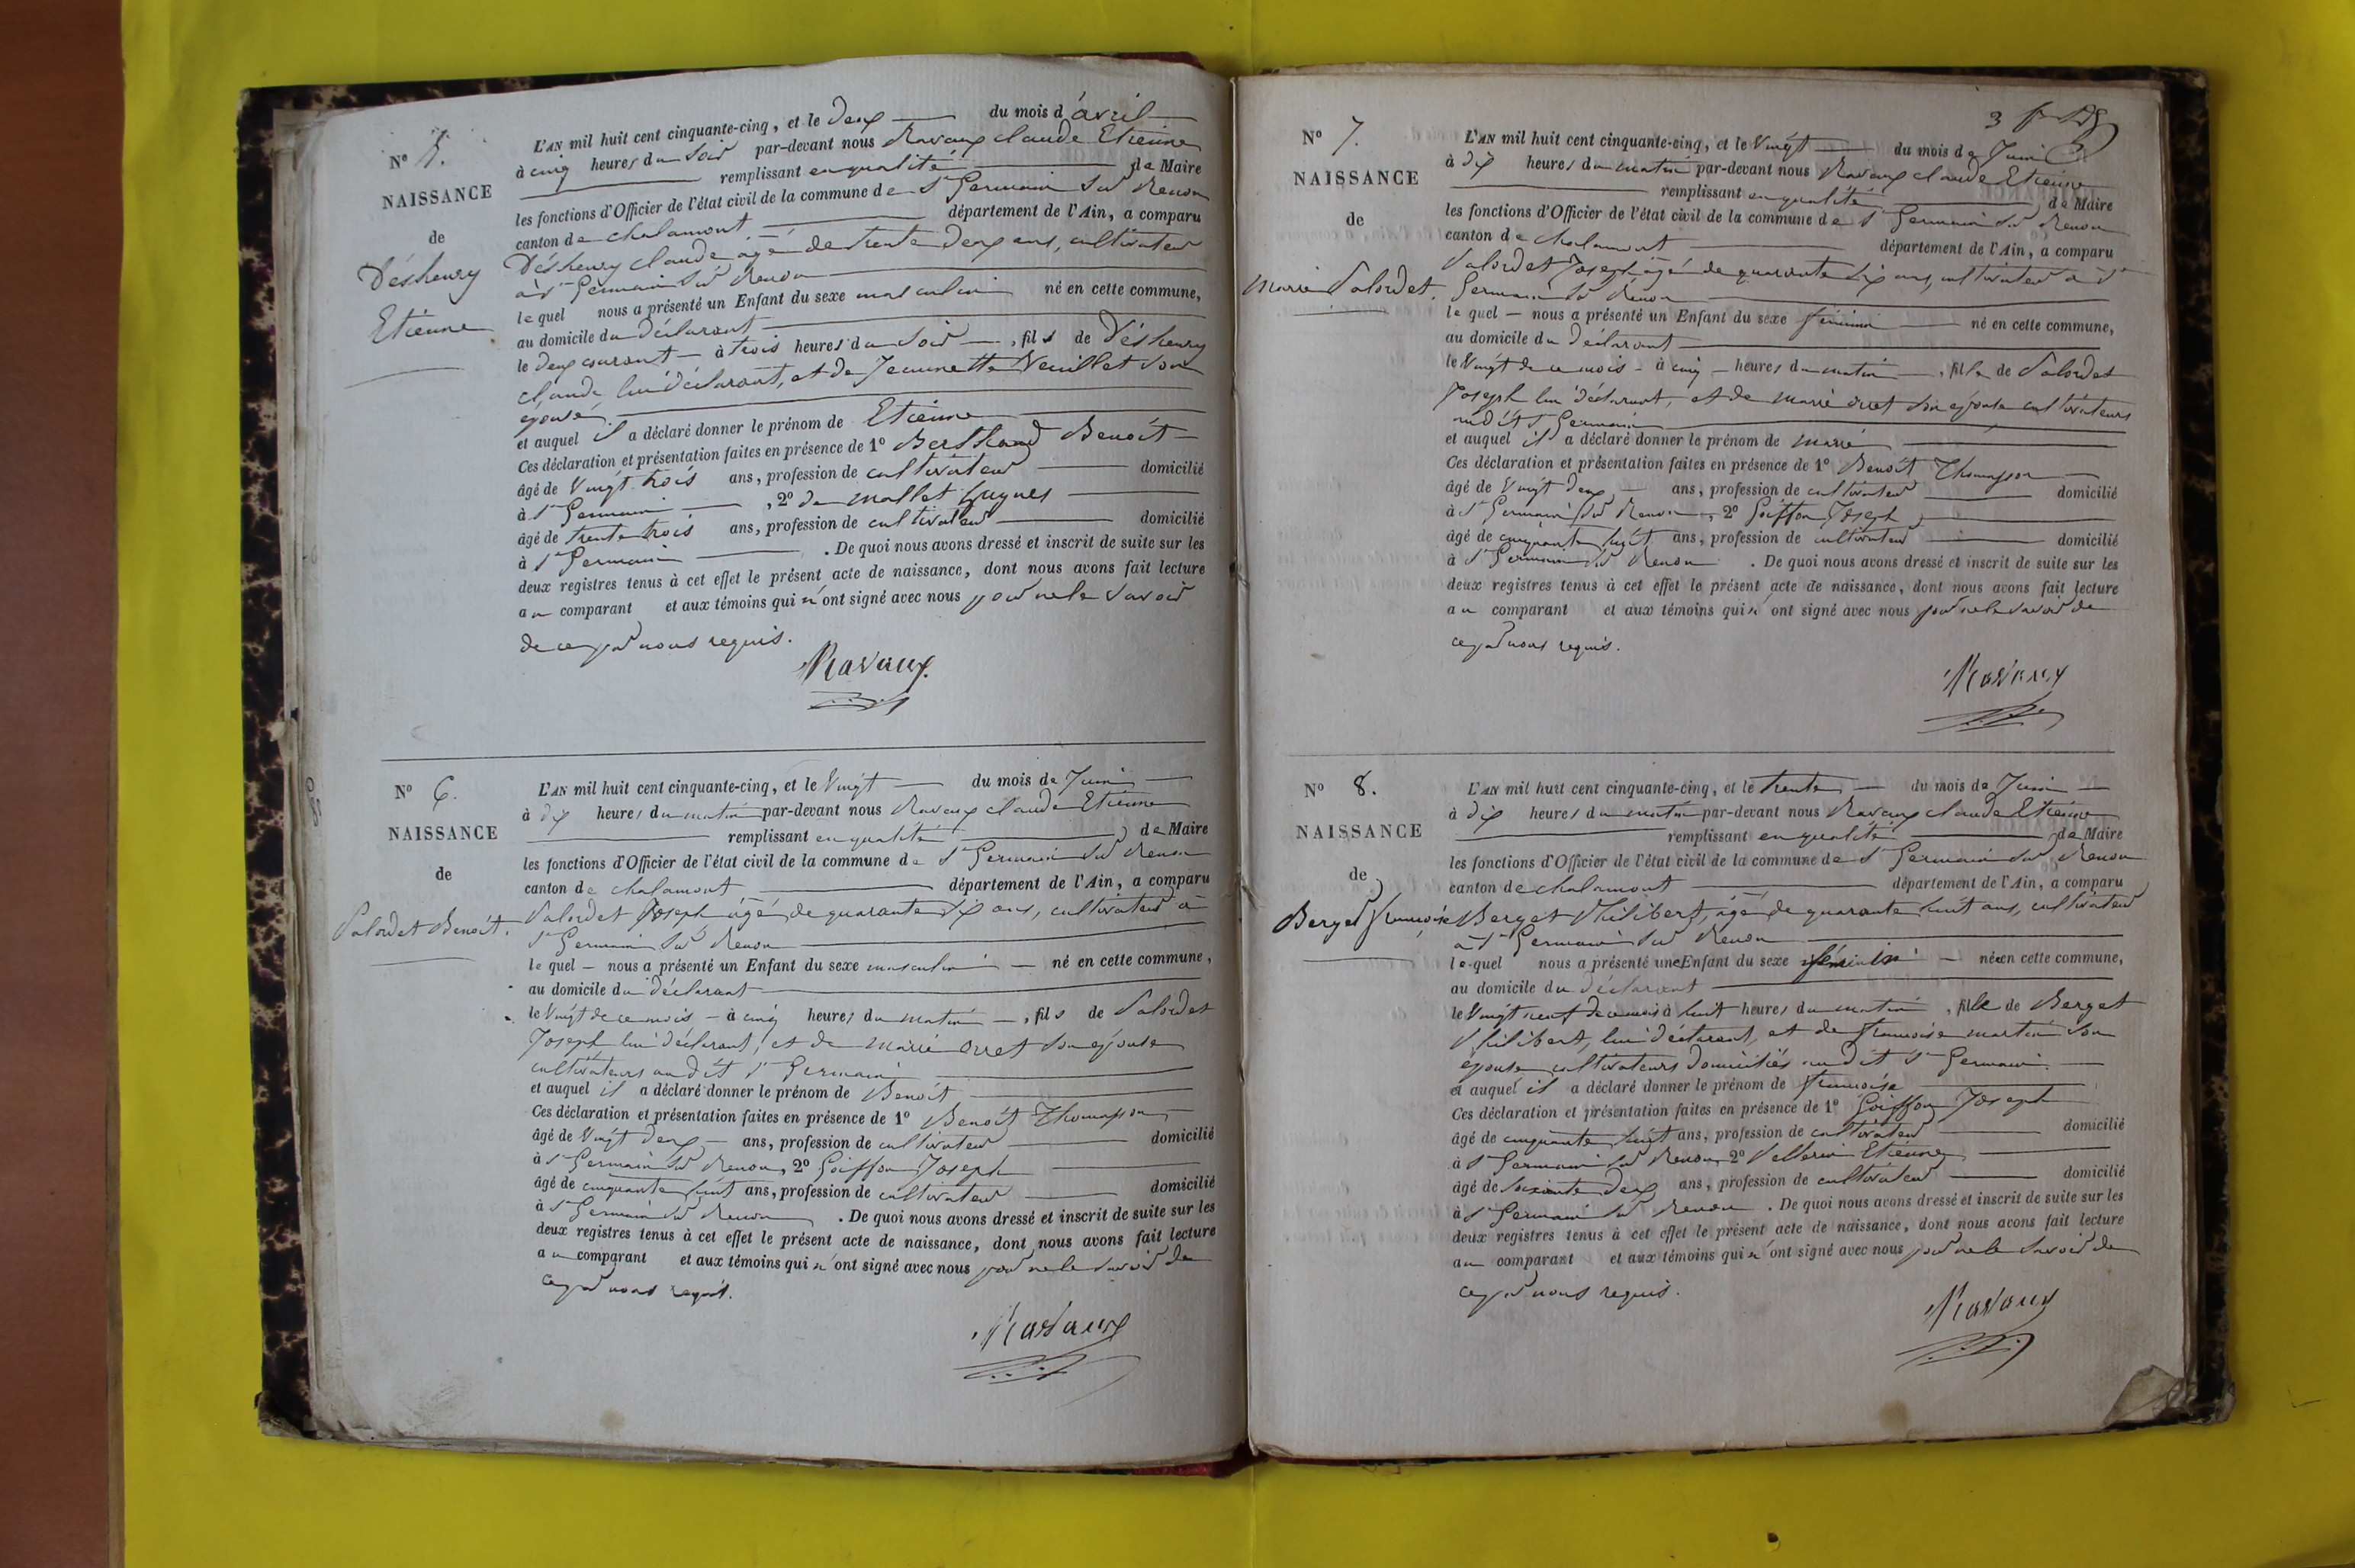 N° 5.
NAISSANCE
de
Déshenry
Etienne
L'AN mil huit cent cinquante-cinq, et le deux du mois d'avril
à cinq heures du soir par-devant nous Ravaux claude Etienne
remplissant en qualité de Maire
les fonctions d'Officier de l'état civil de la commune de St Germain sur Renon
canton de chalamont département de l'Ain, a comparu
Déshenry claude âgé de trente deux ans, cultivateur
à St Germain sur Renon
lequel nous a présenté un Enfant du sexe masculin né en cette commune,
au domicile du déclarant
le deux courant à trois heures du soir, fils de Déshenry
claude lui déclarant, et de Jeannette Veuillet son
épouse
et auquel il a déclaré donner le prénom de Etienne
Ces déclaration et présentation faites en présence de 1° Berthaud Benoît
âgé de Vingt trois ans, profession de cultivateur domicilié
à St Germain, 2° de mallet hugues
âgé de trente trois ans, profession de cultivateur domicilié
à St Germain. De quoi nous avons dressé et inscrit de suite sur les
deux registres tenus à cet effet le présent acte de naissance, dont nous avons fait lecture
au comparant et aux témoins qui n'ont signé avec nous pour ne le savoir
de ce par nous requis.
Ravaux
N° 6.
NAISSANCE
de
Salordet Benoît.
L'AN mil huit cent cinquante-cinq, et le Vingt du mois de Juin
à dix heures du matin par-devant nous Ravaux claude Etienne
remplissant en qualité de Maire
les fonctions d'Officier de l'état civil de la commune de St Germain sur Renon
canton de chalamont département de l'Ain, a comparu
Salordet Joseph âgé de quarante six ans, cultivateur à
St Germain sur Renon
lequel nous a présenté un Enfant du sexe masculin né en cette commune,
au domicile du déclarant
le Vingt de ce mois à cinq heures du matin, fils de Salordet
Joseph lui déclarant, et de marie orset son épouse
cultivateurs au dit St Germain
et auquel il a déclaré donner le prénom de Benoît
Ces déclaration et présentation faites en présence de 1° Benoît Thomasson
âgé de Vingt deux ans, profession de cultivateur domicilié
à St Germain sur Renon, 2° Goiffon Joseph
âgé de cinquante huit ans, profession de cultivateur domicilié
à St Germain sur Renon. De quoi nous avons dressé et inscrit de suite sur les
deux registres tenus à cet effet le présent acte de naissance, dont nous avons fait lecture
au comparant et aux témoins qui n'ont signé avec nous pour ne le savoir de
ce par nous requis.
Ravaux
3
N° 7.
NAISSANCE
de
Marie Salordet.
L'AN mil huit cent cinquante-cinq, et le Vingt du mois de Juin
à dix heures du matin par-devant nous Ravaux claude Etienne
remplissant en qualité de Maire
les fonctions d'Officier de l'état civil de la commune de St Germain sur Renon
canton de chalamont département de l'Ain, a comparu
Salordet Joseph âgé de quarante six ans, cultivateur à St
Germain sur Renon
lequel nous a présenté un Enfant du sexe féminin né en cette commune,
au domicile du déclarant
le Vingt de ce mois à cinq heures du matin, fille de Salordet
Joseph lui déclarant, et de marie orset son épouse cultivateurs
au dit St Germain
et auquel il a déclaré donner le prénom de marie
Ces déclaration et présentation faites en présence de 1° Benoît Thomasson
âgé de Vingt deux ans, profession de cultivateur domicilié
à St Germain sur Renon, 2° Goiffon Joseph
âgé de cinquante huit ans, profession de cultivateur domicilié
à St Germain sur Renon. De quoi nous avons dressé et inscrit de suite sur les
deux registres tenus à cet effet le présent acte de naissance, dont nous avons fait lecture
au comparant et aux témoins qui n'ont signé avec nous pour ne le savoir de
ce par nous requis.
Ravaux
N° 8.
NAISSANCE
de
Berget françoise
L'AN mil huit cent cinquante-cinq, et le trente du mois de Juin
à dix heures du matin par-devant nous Ravaux claude Etienne
remplissant en qualité de Maire
les fonctions d'Officier de l'état civil de la commune de St Germain sur Renon
canton de chalamont département de l'Ain, a comparu
Berget Philibert, âgé de quarante huit ans, cultivateur
à St Germain sur Renon
lequel nous a présenté une Enfant du sexe féminin née en cette commune,
au domicile du déclarant
le Vingt neuf de ce mois à huit heures du matin, fille de Berget
Philibert, lui déclarant, et de françoise martin son
épouse cultivateurs domiciliés au dit St Germain.
et auquel il a déclaré donner le prénom de françoise
Ces déclaration et présentation faites en présence de 1° Goiffon Joseph
âgé de cinquante huit ans, profession de cultivateur domicilié
à St Germain sur Renon, 2° Vellerin Etienne
âgé de soixante deux ans, profession de cultivateur domicilié
à St Germain sur Renon. De quoi nous avons dressé et inscrit de suite sur les
deux registres tenus à cet effet le présent acte de naissance, dont nous avons fait lecture
au comparant et aux témoins qui n'ont signé avec nous pour ne le savoir de
ce par nous requis.
Ravaux